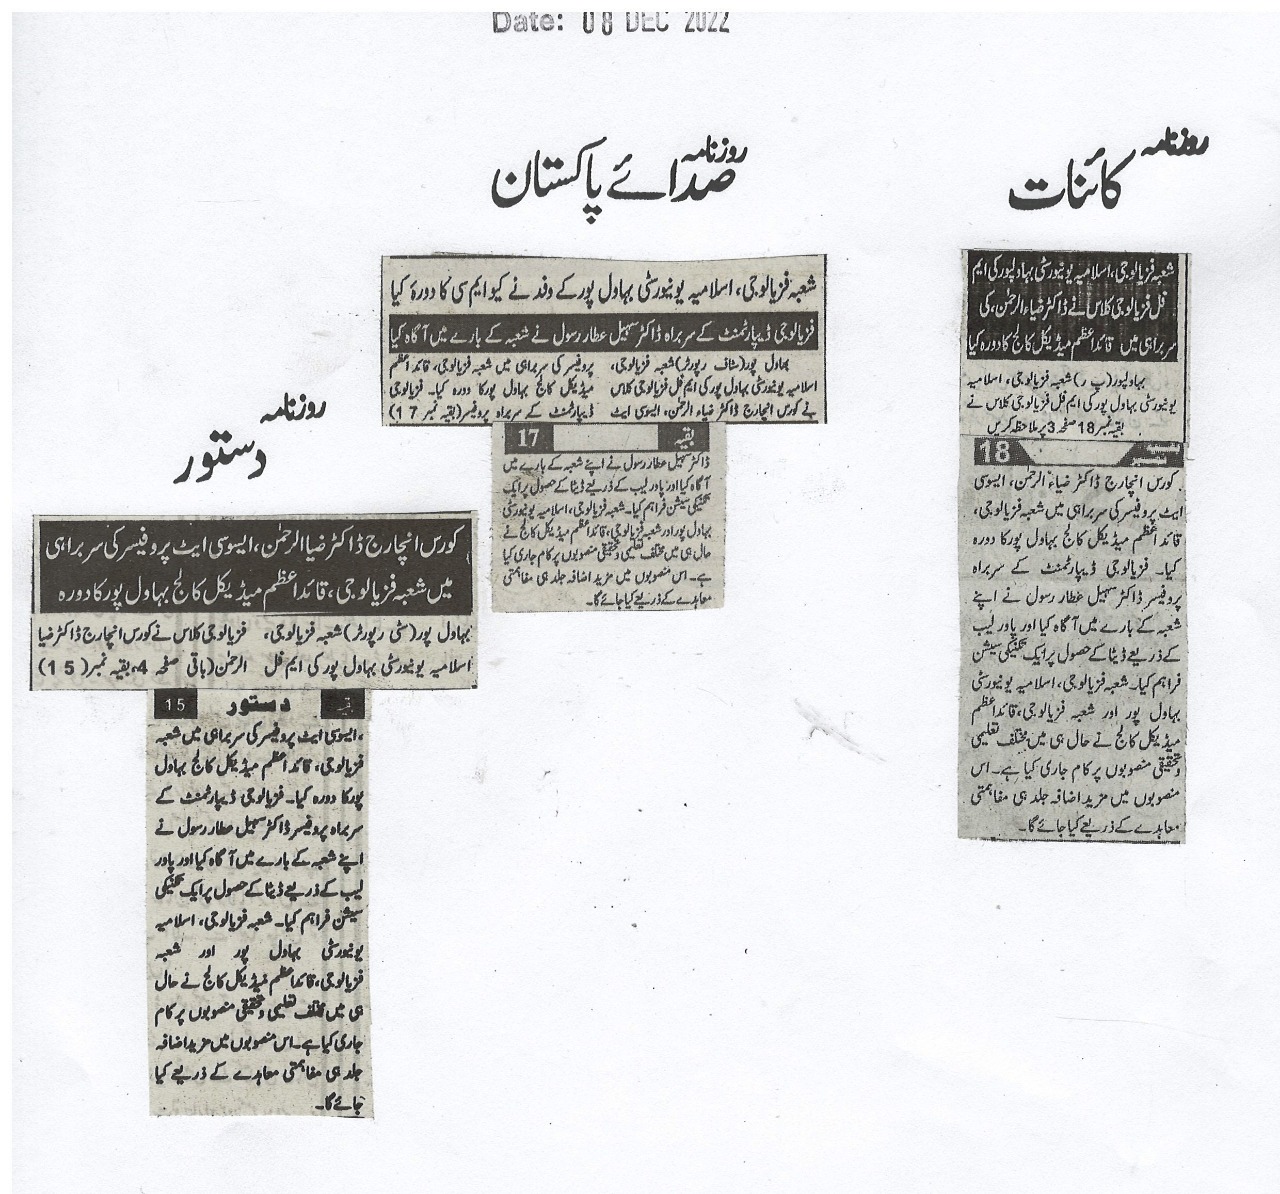 Date: 08 DEC 2022
روزنامہ
کائنات
شعبہ فزیالوجی، اسلامیہ یونیورسٹی بہاولپور کی ایم
فل فزیالوجی کلاس نے ڈاکٹر ضیاء الرحمٰن، کی
سربراہی میں قائداعظم میڈیکل کالج کا دورہ کیا
بہاولپور (پ ر) شعبہ فزیالوجی، اسلامیہ
یونیورسٹی بہاول پور کی ایم فل فزیالوجی کلاس نے
بقیہ نمبر 18 صفحہ 3 پر ملاحظہ کریں
18
کورس انچارج ڈاکٹر ضیاء الرحمن، ایسوسی
ایٹ پروفیسر کی سربراہی میں شعبہ فزیالوجی،
قائداعظم میڈیکل کالج بہاول پور کا دورہ
کیا۔ فزیالوجی ڈیپارٹمنٹ کے سربراہ
پروفیسر ڈاکٹر سہیل عطار رسول نے اپنے
شعبہ کے بارے میں آگاہ کیا اور پاور لیب
کے ذریعے ڈیٹا کے حصول پر ایک تکنیکی سیشن
فراہم کیا۔ شعبہ فزیالوجی، اسلامیہ یونیورسٹی
بہاول پور اور شعبہ فزیالوجی، قائداعظم
میڈیکل کالج نے حال ہی میں مختلف تعلیمی
و تحقیقی منصوبوں پر کام جاری کیا ہے۔ اس
منصوبوں میں مزید اضافہ جلد ہی مفاہمتی
معاہدے کے ذریعے کیا جائے گا۔
روزنامہ
صدائے پاکستان
شعبہ فزیالوجی، اسلامیہ یونیورسٹی بہاول پور کے وفد نے کیو ایم سی کا دورہ کیا
فزیالوجی ڈیپارٹمنٹ کے سربراہ ڈاکٹر سہیل عطار رسول نے شعبہ کے بارے میں آگاہ کیا
بہاول پور (سٹاف رپورٹر) شعبہ فزیالوجی،
اسلامیہ یونیورسٹی بہاول پور کی ایم فل فزیالوجی کلاس
نے کورس انچارج ڈاکٹر ضیاء الرحمن، ایسوسی ایٹ
پروفیسر کی سربراہی میں شعبہ فزیالوجی، قائداعظم
میڈیکل کالج بہاول پور کا دورہ کیا۔ فزیالوجی
ڈیپارٹمنٹ کے سربراہ پروفیسر (بقیہ نمبر 17)
بقیہ 17
ڈاکٹر سہیل عطار رسول نے اپنے شعبہ کے بارے میں
آگاہ کیا اور پاور لیب کے ذریعے ڈیٹا کے حصول پر ایک
تکنیکی سیشن فراہم کیا۔ شعبہ فزیالوجی، اسلامیہ یونیورسٹی
بہاول پور اور شعبہ فزیالوجی، قائداعظم میڈیکل کالج نے
حال ہی میں مختلف تعلیمی و تحقیقی منصوبوں پر کام جاری کیا
ہے۔ اس منصوبوں میں مزید اضافہ جلد ہی مفاہمتی
معاہدے کے ذریعے کیا جائے گا۔
روزنامہ
دستور
کورس انچارج ڈاکٹر ضیا الرحمٰن، ایسوسی ایٹ پروفیسر کی سربراہی
میں شعبہ فزیالوجی، قائداعظم میڈیکل کالج بہاول پور کا دورہ
بہاول پور (سٹی رپورٹر) شعبہ فزیالوجی،
اسلامیہ یونیورسٹی بہاول پور کی ایم فل
فزیالوجی کلاس نے کورس انچارج ڈاکٹر ضیا
الرحمٰن (باقی صفحہ 4، بقیہ نمبر (15)
بقیہ دستور 15
، ایسوسی ایٹ پروفیسر کی سربراہی میں شعبہ
فزیالوجی، قائداعظم میڈیکل کالج بہاول
پور کا دورہ کیا۔ فزیالوجی ڈیپارٹمنٹ کے
سربراہ پروفیسر ڈاکٹر سہیل عطار رسول نے
اپنے شعبہ کے بارے میں آگاہ کیا اور پاور
لیب کے ذریعے ڈیٹا کے حصول پر ایک تکنیکی
سیشن فراہم کیا۔ شعبہ فزیالوجی، اسلامیہ
یونیورسٹی بہاول پور اور شعبہ
فزیالوجی، قائداعظم میڈیکل کالج نے حال
ہی میں مختلف تعلیمی و تحقیقی منصوبوں پر کام
جاری کیا ہے۔ اس منصوبوں میں مزید اضافہ
جلد ہی مفاہمتی معاہدے کے ذریعے کیا
جائے گا۔